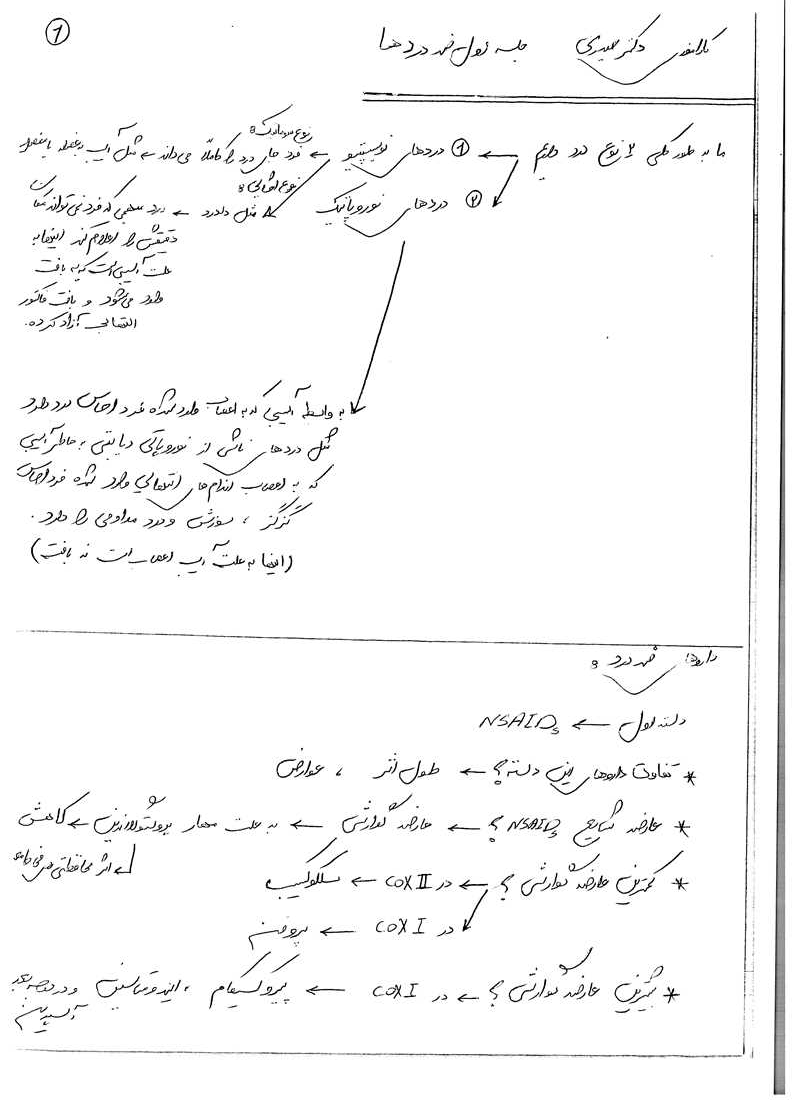 ①
کارآموزی دکتر حیدری جلسه اول ضد دردها
ما به طور کلی ۲ نوع درد داریم ← ① دردهای نوسیسپتیو ← نوع سوماتیک: فرد جای درد را کاملاً می‌داند ← مثل آسیب به عضله یا مفصل
② دردهای نوروپاتیک
نوع احشایی: مثل دل درد ← درد مبهمی که فرد نمی‌تواند مکان
دقیقش را اعلام کند اینها به
علت آسیبی است که به بافت
وارد می‌شود و بافت فاکتور
التهابی آزاد کرده.
به واسطه آسیبی که به اعصاب وارد شده فرد احساس درد دارد
مثل دردهای ناشی از نوروپاتی دیابتی به خاطر آسیبی
که به اعصاب اندام‌های انتهایی وارد شده فرد احساس
گزگز ، سوزش و درد مداومی را دارد.
(اینها به علت آسیب اعصاب است نه بافت)
داروهای ضد درد :
دسته اول ← NSAIDs
* تفاوت داروهای این دسته؟ ← طول اثر ، عوارض
* عارضه شایع NSAIDs؟ ← عارضه گوارشی ← به علت مهار پروستاگلاندین ← کاهش
اثر محافظتی
* کمترین عارضه گوارشی؟ ← در COX II ← سلکوکسیب
در COX I ← بروفن
* بیشترین عارضه گوارشی؟ ← در COX I ← پیروکسیکام ، ایندومتاسین و در درجه بعد
آسپرین